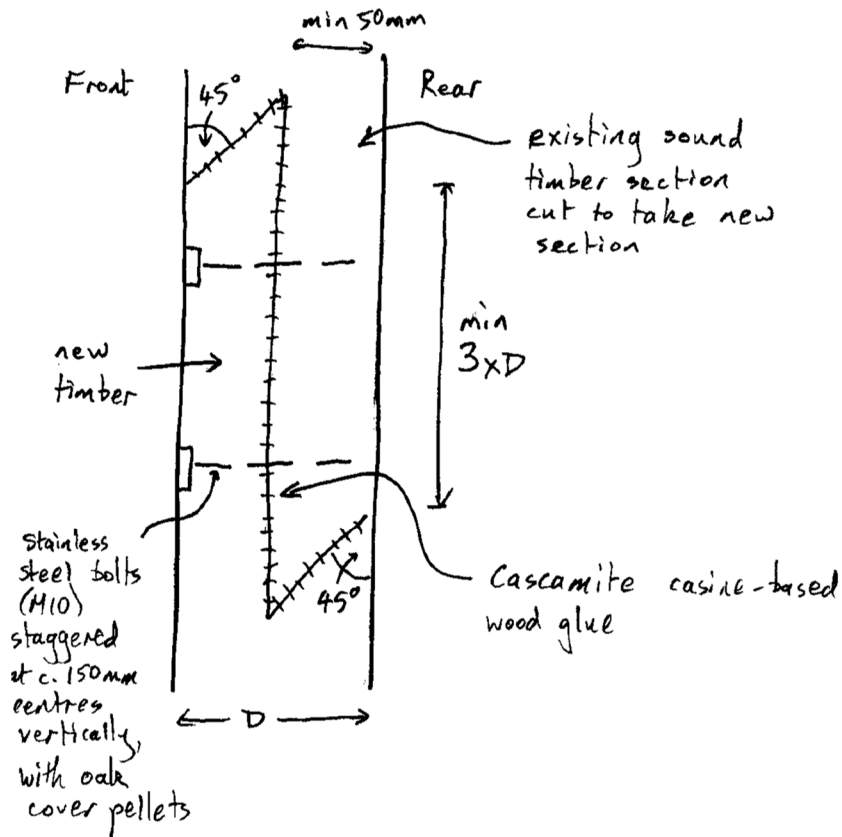 min 50mm
Front
45°
Rear
existing sound
timber section
cut to take new
section
min
3xD
new
timber
Stainless
steel bolts
(M10)
staggered
at c. 150mm
centres
vertically,
with oak
cover pellets
45°
Cascamite casine-based
wood glue
D